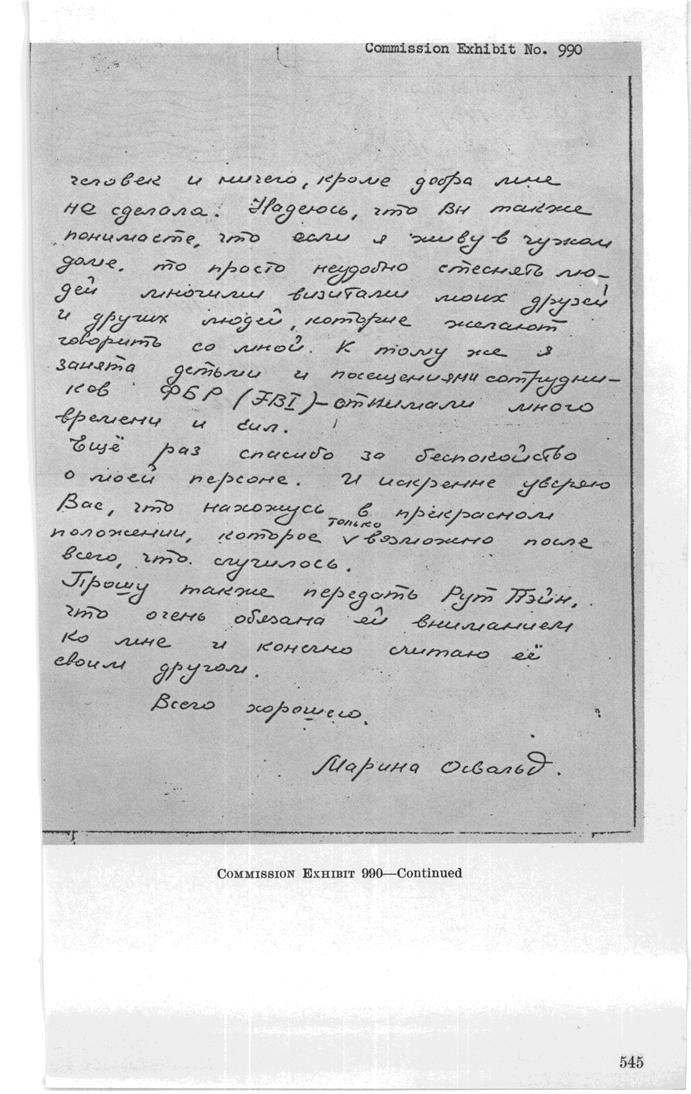 Commission Exhibit No. 990
человек и ничего, кроме добра мне
не сделала. Надеюсь, что Вы также
понимаете, что если я живу в чужом
доме, то просто неудобно стеснять лю-
дей многими визитами моих друзей
и других людей, которые желают
говорить со мной. К тому же я
занята детьми и посещениями сотрудни-
ков ФБР (FBI)-отнимали много
времени и сил.
Ещё раз спасибо за беспокойство
о моей персоне. И искренне уверяю
Вас, что нахожусь в прекрасном
только
положении, которое v возможно после
всего, что случилось.
Прошу также передать Рут Пэйн,
что очень обязана ей вниманием
ко мне и конечно считаю её
своим другом.
Всего хорошего.
Марина Освальд.
COMMISSION EXHIBIT 990—Continued
545